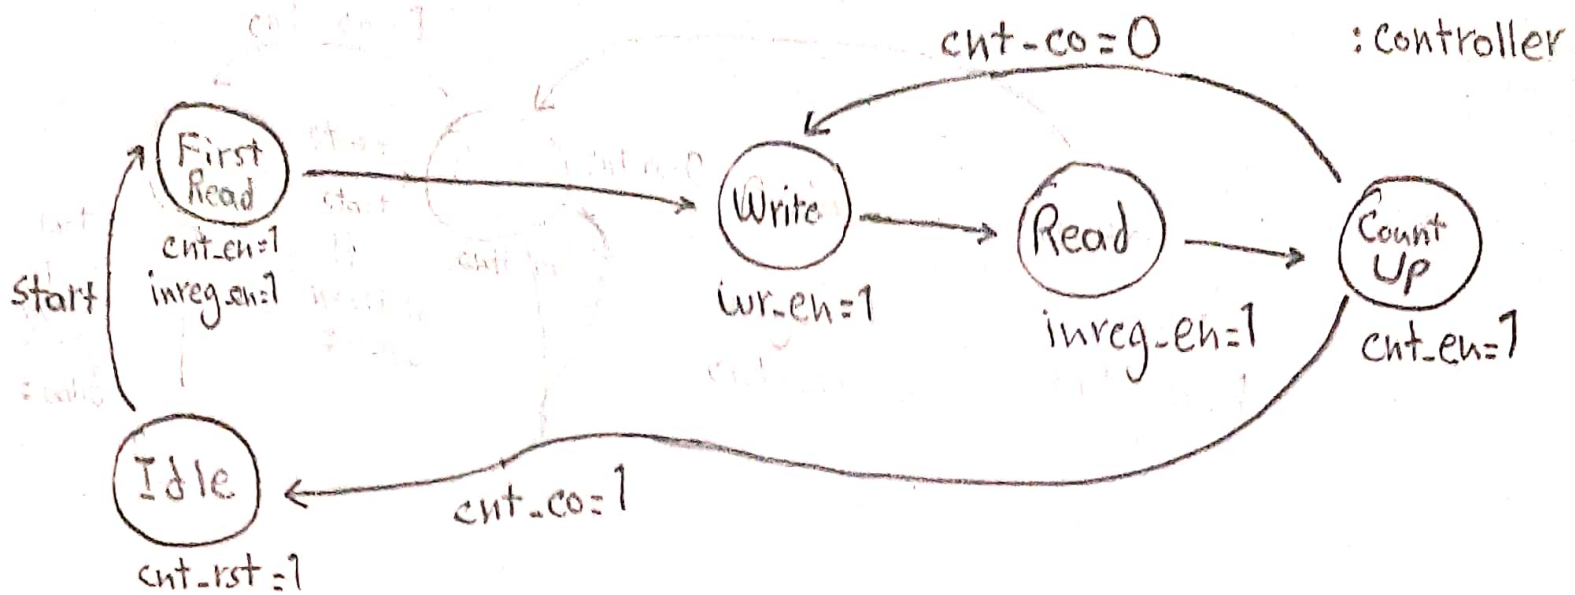 cnt-co=0
:controller
First
Read
cnt-en=1
inreg-en=1
Write
wr-en=1
Read
inreg-en=1
Count
Up
cnt-en=1
start
Idle
cnt-rst=1
cnt-co=1